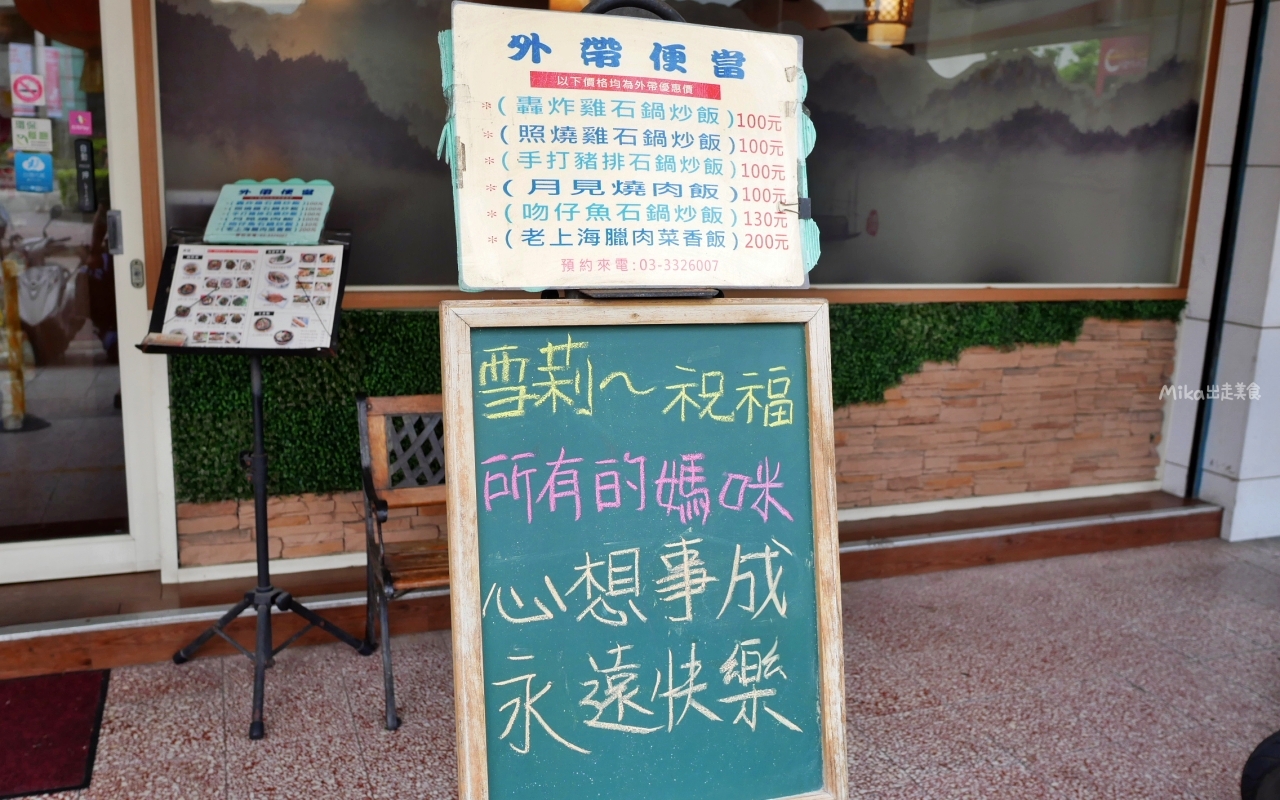 外帶便當
以下價格均為外帶優惠價
*(轟炸雞石鍋炒飯)100元
*(照燒雞石鍋炒飯)100元
*(手打豬排石鍋炒飯)100元
*(月見燒肉飯)100元
*(吻仔魚石鍋炒飯)130元
*(老上海臘肉菜香飯)200元
預約來電:03-3326007
雪莉～祝福
所有的媽咪
心想事成
永遠快樂
外帶便當
Mika出走美食